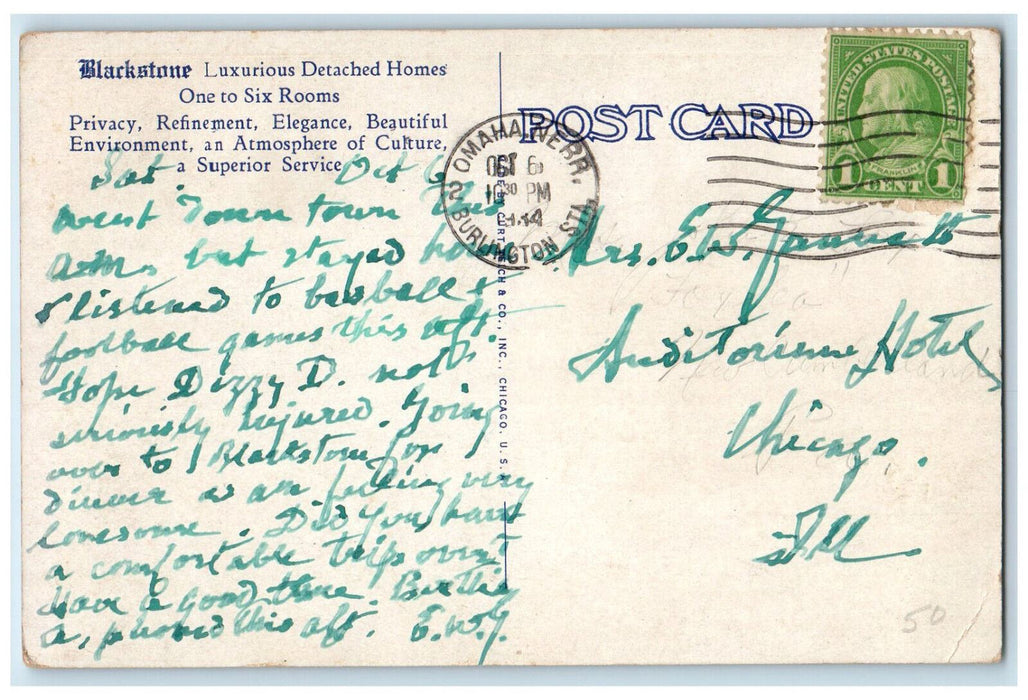 Blackstone Luxurious Detached Homes
One to Six Rooms
Privacy, Refinement, Elegance, Beautiful
Environment, an Atmosphere of Culture,
a Superior Service
POST CARD
UNITED STATES POSTAGE
FRANKLIN
1 CENT 1
OMAHA, NEBR.
OCT 6
30 PM
BURLINGTON STA.
2
CURT TEICH & CO., INC., CHICAGO, U. S. A.
Sat. Oct 6
went down town this
A.M. but stayed home
& listened to basball &
football games this aft.
Hope Dizzy D. not
seriously injured. Going
over to Blackstone for
dinner as am feeling very
lonesome. Did you have
a comfortable trip over?
Have a good time.
a, phoned this aft. E.W.G.
Mrs. E.W.
Auditorium Hotel,
Chicago.
Ill
50